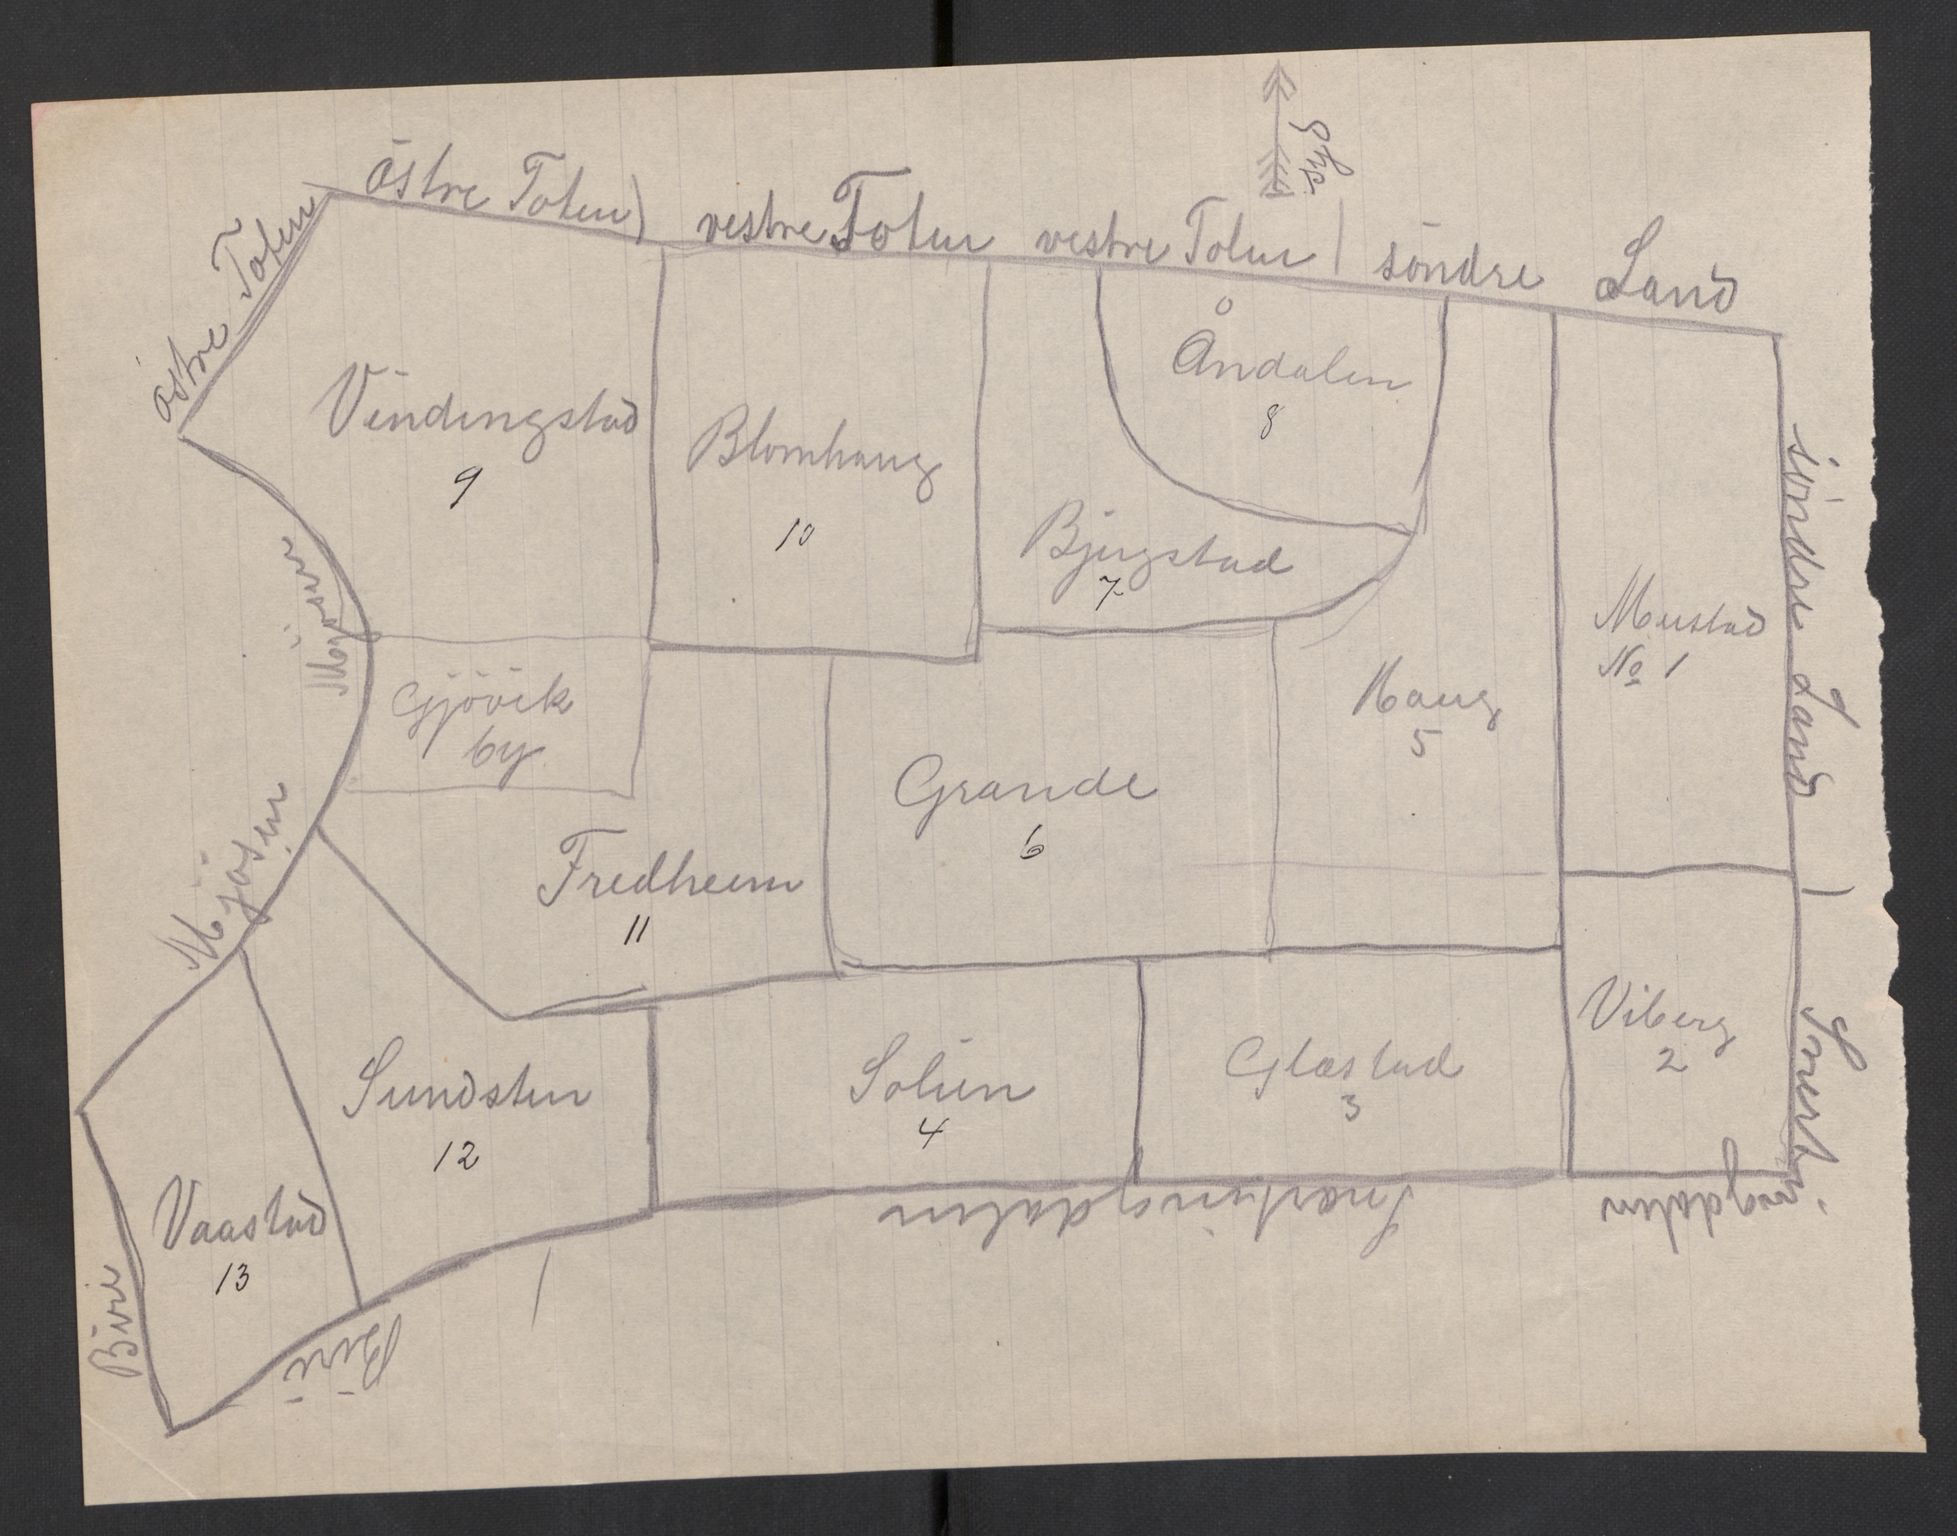 östre Toten) vestre Toten vestre Toten | söndre Land
Syd
östre Toten
Vindingstad
9
Blomhaug
10
Åndalen
8
Bjugstad
7
Mustad
No 1
söndre Land
Mjösen
Gjövik
by
Haug
5
Grande
6
Mjösen
Fredheim
11
Viberg
2
Snertingdalen
Sundsten
12
Solien
4
Glæstad
3
Snertingdalen
Vaastad
13
Biri
Biri